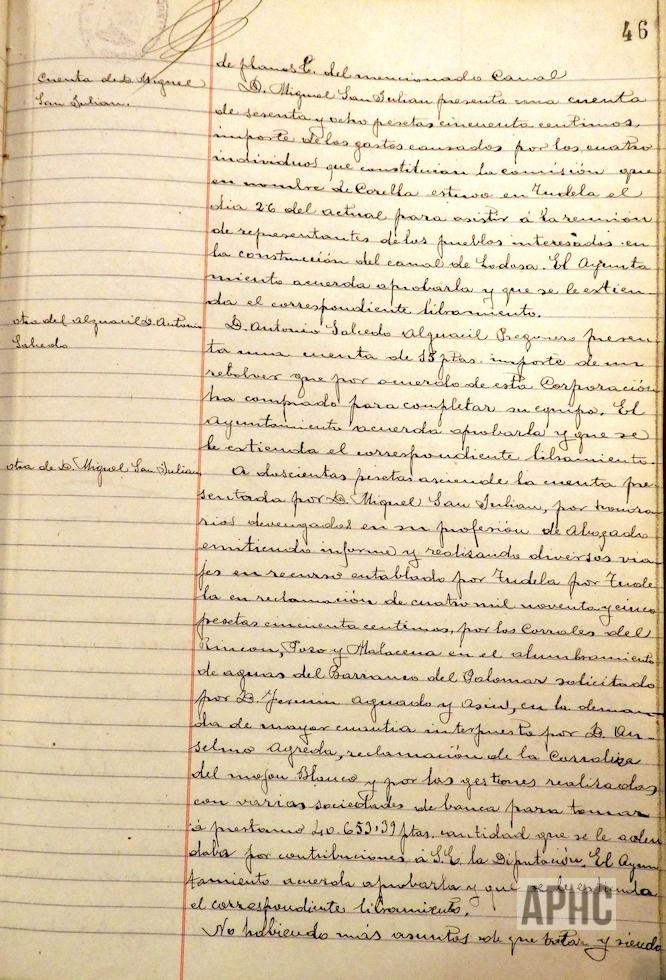 46
de planos &. del mencionado Canal
Cuenta de D. Miguel
San Julian.
D. Miguel San Julian presenta una cuenta
de sesenta y ocho pesetas cincuenta centimos,
importe de los gastos causados por los cuatro
individuos que constituian la comisión que
en nombre de Corella estuvo en Tudela el
dia 26 del actual para asistir á la reunión
de representantes de los pueblos interesados en
la construcción del canal de Lodosa. El Ayunta
miento acuerda aprobarla y que se le extien
da el correspondiente libramiento.
otra del Alguacil D. Antonio
Salcedo
D. Antonio Salcedo Alguacil Pregonero presen
ta una cuenta de 15 ptas. importe de un
rebolver que por acuerdo de esta Corporación
ha comprado para completar su equipo. El
Ayuntamiento acuerda aprobarla y que se
le extienda el correspondiente libramiento.
otra de D. Miguel San Julian
A doscientas pesetas asciende la cuenta pre
sentada por D. Miguel San Julian, por honora
rios devengados en su profesión de Abogado
emitiendo informe y realizando diversos via
jes en recurso entablado por Tudela por Tude
la en reclamación de cuatro mil noventa y cinco
pesetas cincuenta centimos, por los Corrales del
Rincon, Pozo y Malacena en el alumbramiento
de aguas del Barranco del Palomar solicitado
por D. Fermin Aguado y Asin, en la deman-
da de mayor cuantia interpuesta por D. An-
selmo Agreda, reclamación de la Corraliza
del mojon Blanco y por las gestiones realizadas
con varias sociedades de banca para tomar
á prestamo 40.653,39 ptas. cantidad que se le adeu
daba por contribuciones á S.E. la Diputación. El Ayun
tamiento acuerda aprobarla y que se le extienda
el correspondiente libramiento.
No habiendo más asuntos de que tratar y siendo
APHC